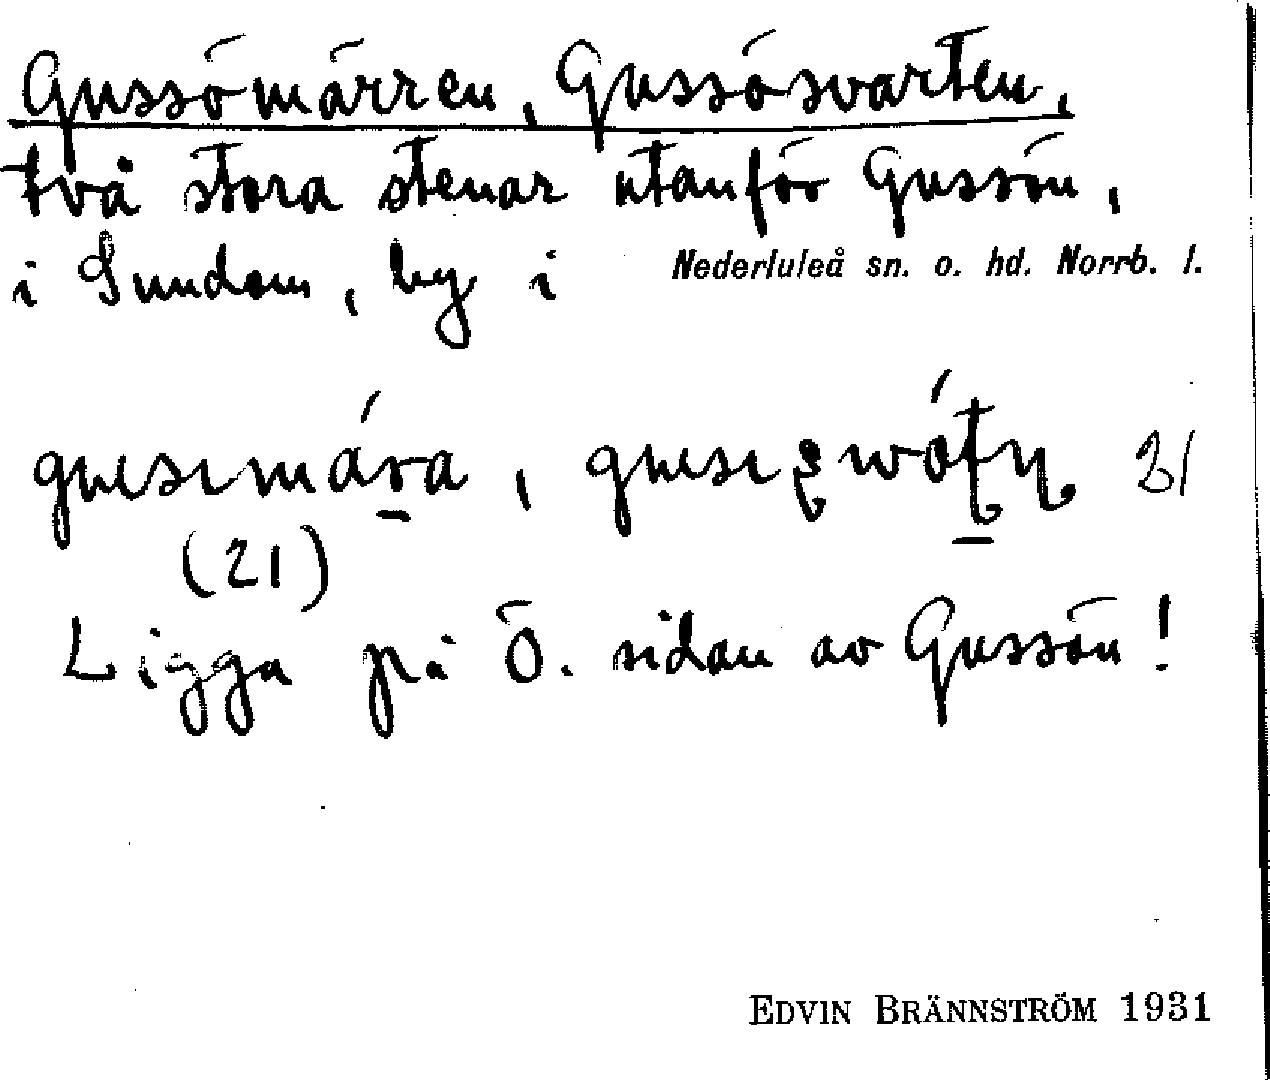 Gussömärren, Gussösvarten,
två stora stenar utanför Gussön,
i Sundom, by i Nederluleå sn. o. hd. Norrb. l.
31
(21)
Ligga på Ö. sidan av Gussön!
EDVIN BRÄNNSTRÖM 1931